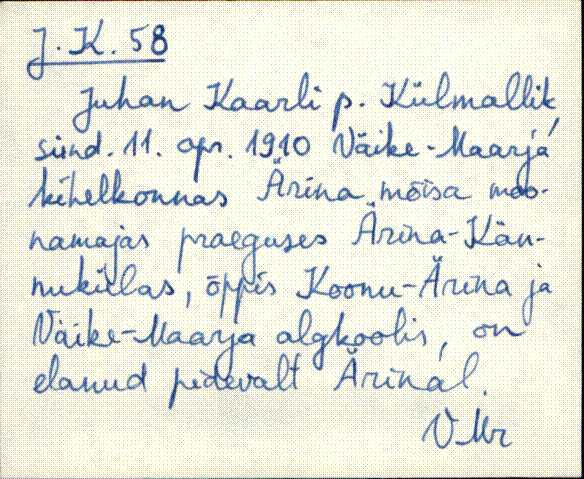 J. K. 58
Juhan Kaarli p. Külmallik,
sünd. 11. apr. 1910 Väike-Maarja
kihelkonnas Ärina mõisa moo-
namajas praeguses Ärina-Kän-
nukülas, õppis Koonu-Ärina ja
Väike-Maarja algkoolis, on
elanud pidevalt Ärinal.
VMr